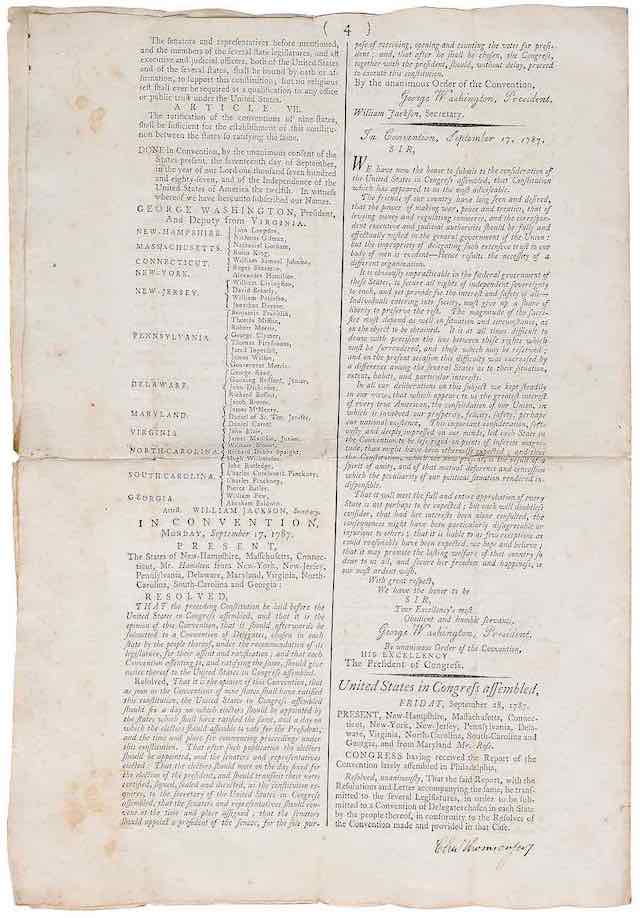 ( 4 )
The senators and representatives before mentioned,
and the members of the several state legislatures, and all
executive and judicial officers, both of the United States
and of the several States, shall be bound by oath or af-
firmation, to support this constitution; but no religious
test shall ever be required as a qualification to any office
or public trust under the United States.
ARTICLE VII.
The ratification of the conventions of nine states,
shall be sufficient for the establishment of this constitu-
tion between the states so ratifying the same.
DONE in Convention, by the unanimous consent of the
States present, the seventeenth day of September,
in the year of our Lord one thousand seven hundred
and eighty-seven, and of the Independence of the
United States of America the twelfth. In witness
whereof we have hereunto subscribed our Names.
GEORGE WASHINGTON, President,
And Deputy from VIRGINIA.
NEW-HAMPSHIRE. John Langdon,
Nicholas Gilman,
MASSACHUSETTS. Nathaniel Gorham,
Rufus King,
CONNECTICUT. William Samuel Johnson,
Roger Sherman,
NEW-YORK. Alexander Hamilton,
NEW-JERSEY. William Livingston,
David Brearly,
William Paterson,
Jonathan Dayton,
PENNSYLVANIA. Benjamin Franklin,
Thomas Mifflin,
Robert Morris,
George Clymer,
Thomas Fitzsimons,
Jared Ingersoll,
James Wilson,
Gouverneur Morris,
DELAWARE. George Read,
Gunning Bedford, Junior,
John Dickinson,
Richard Bassett,
Jacob Broom,
MARYLAND. James M'Henry,
Daniel of St. Tho. Jenifer,
Daniel Carrol,
VIRGINIA. John Blair,
James Madison, Junior,
NORTH-CAROLINA. William Blount,
Richard Dobbs Spaight,
Hugh Williamson,
SOUTH-CAROLINA. John Rutledge,
Charles Cotesworth Pinckney,
Charles Pinckney,
Pierce Butler,
GEORGIA. William Few,
Abraham Baldwin,
Attest. WILLIAM JACKSON, Secretary.
IN CONVENTION,
MONDAY, September 17, 1787.
PRESENT,
The States of New-Hampshire, Massachusetts, Connec-
ticut, Mr. Hamilton from New-York, New-Jersey,
Pennsylvania, Delaware, Maryland, Virginia, North-
Carolina, South-Carolina and Georgia:
RESOLVED,
THAT the preceding Constitution be laid before the
United States in Congress assembled, and that it is the
opinion of this Convention, that it should afterwards be
submitted to a Convention of Delegates, chosen in each
state by the people thereof, under the recommendation of its
legislature, for their assent and ratification; and that each
Convention assenting to, and ratifying the same, should give
notice thereof to the United States in Congress assembled.
Resolved, That it is the opinion of this Convention, that
as soon as the Conventions of nine states shall have ratified
this constitution, the United States in Congress assembled
should fix a day on which electors should be appointed by
the states which shall have ratified the same, and a day on
which the electors should assemble to vote for the President,
and the time and place for commencing proceedings under
this constitution. That after such publication the electors
should be appointed, and the senators and representatives
elected: That the electors should meet on the day fixed for
the election of the president, and should transmit their votes
certified, signed, sealed and directed, as the constitution re-
quires, to the secretary of the United States in Congress
assembled, that the senators and representatives should con-
vene at the time and place assigned; that the senators
should appoint a president of the senate, for the sole pur-
pose of receiving, opening and counting the votes for presi-
dent; and, that after he shall be chosen, the Congress,
together with the president, should, without delay, proceed
to execute this constitution.
By the unanimous Order of the Convention,
George Washington, President.
William Jackson, Secretary.
In Convention, September 17, 1787.
SIR,
WE have now the honor to submit to the consideration of
the United States in Congress assembled, that Constitution
which has appeared to us the most adviseable.
The friends of our country have long seen and desired,
that the power of making war, peace and treaties, that of
levying money and regulating commerce, and the correspon-
dent executive and judicial authorities should be fully and
effectually vested in the general government of the Union:
but the impropriety of delegating such extensive trust to one
body of men is evident—Hence results the necessity of a
different organization.
It is obviously impracticable in the federal government of
these States, to secure all rights of independent sovereignty
to each, and yet provide for the interest and safety of all—
Individuals entering into society, must give up a share of
liberty to preserve the rest. The magnitude of the sacri-
fice must depend as well on situation and circumstance, as
on the object to be obtained. It is at all times difficult to
draw with precision the line between those rights which
must be surrendered, and those which may be reserved;
and on the present occasion this difficulty was encreased by
a difference among the several States as to their situation,
extent, habits, and particular interests.
In all our deliberations on this subject we kept steadily
in our view, that which appears to us the greatest interest
of every true American, the consolidation of our Union, in
which is involved our prosperity, felicity, safety, perhaps
our national existence. This important consideration, seri-
ously and deeply impressed on our minds, led each State in
the Convention to be less rigid on points of inferior magni-
tude, than might have been otherwise expected; and thus
the Constitution, which we now present, is the result of a
spirit of amity, and of that mutual deference and concession
which the peculiarity of our political situation rendered in-
dispensible.
That it will meet the full and entire approbation of every
State is not perhaps to be expected; but each will doubtless
consider, that had her interests been alone consulted, the
consequences might have been particularly disagreeable or
injurious to others; that it is liable to as few exceptions as
could reasonably have been expected, we hope and believe;
that it may promote the lasting welfare of that country so
dear to us all, and secure her freedom and happiness, is
our most ardent wish.
With great respect,
We have the honor to be
SIR,
Your Excellency's most
Obedient and humble servants,
George Washington, President.
By unanimous Order of the Convention,
HIS EXCELLENCY
The President of Congress.
United States in Congress assembled,
FRIDAY, September 28, 1787.
PRESENT, New-Hampshire, Massachusetts, Connec-
ticut, New-York, New-Jersey, Pennsylvania, Dela-
ware, Virginia, North-Carolina, South-Carolina and
Georgia, and from Maryland Mr. Ross.
CONGRESS having received the Report of the
Convention lately assembled in Philadelphia,
Resolved, unanimously, That the said Report, with the
Resolutions and Letter accompanying the same, be trans-
mitted to the several Legislatures, in order to be sub-
mitted to a Convention of Delegates chosen in each State
by the people thereof, in conformity to the Resolves of
the Convention made and provided in that Case.
Chas Thomson Secy